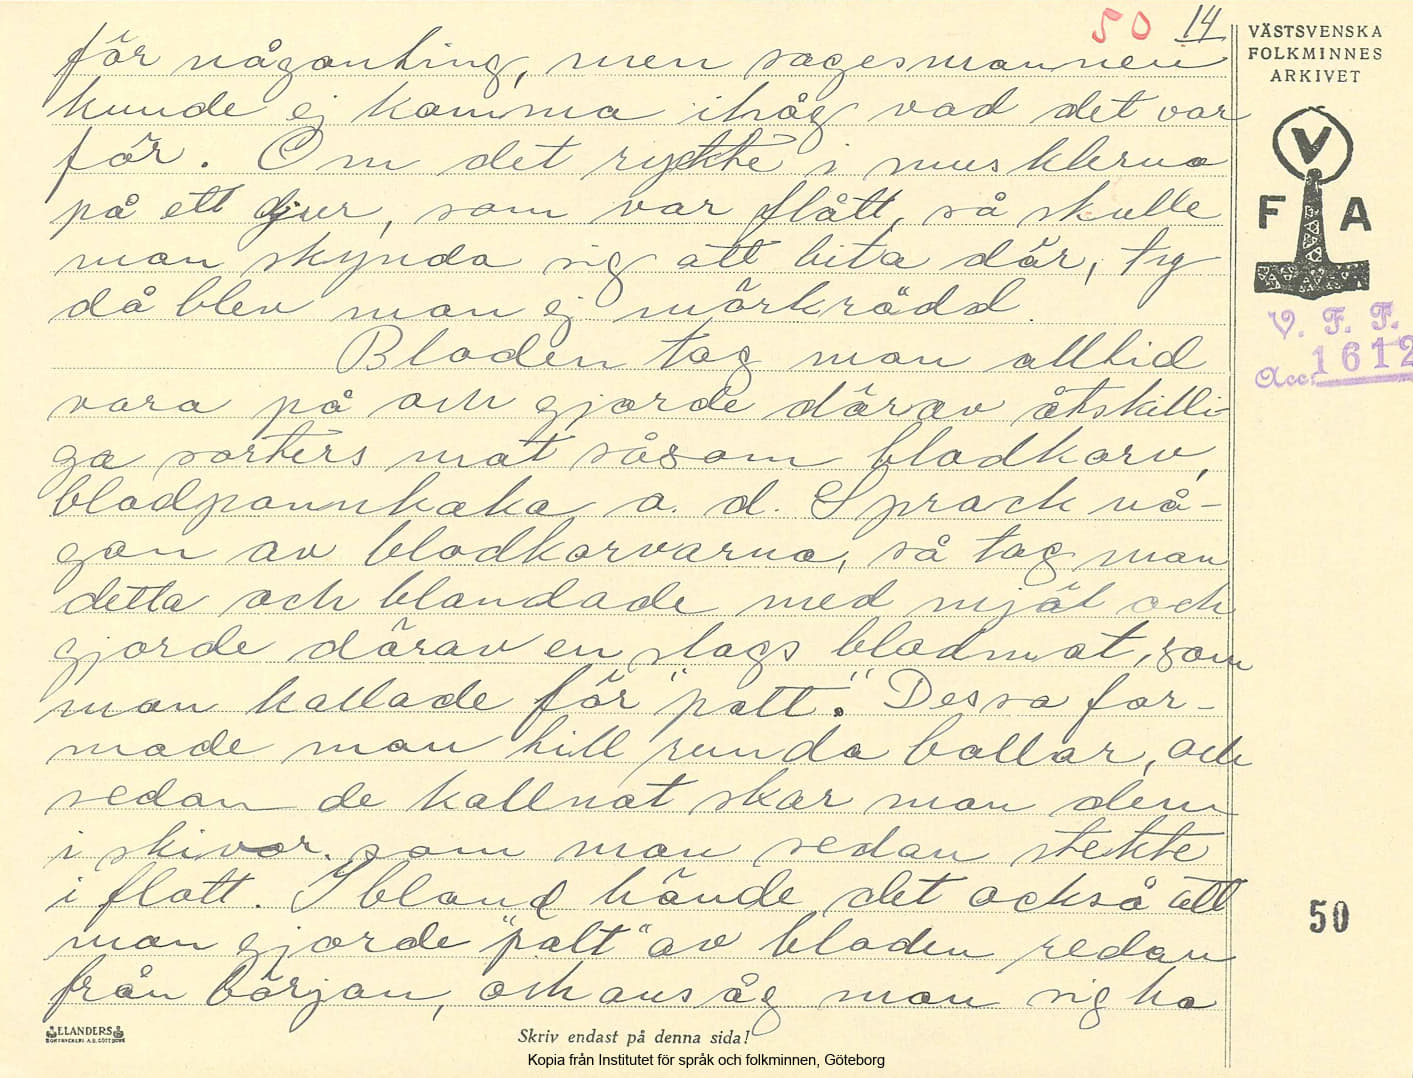 50 14
VÄSTSVENSKA
FOLKMINNES
ARKIVET
V
F A
V. F. F.
Acc. 1612
för någonting, men sagesmannen
kunde ej komma ihåg vad det var
för. Om det ryckte i musklerna
på ett djur, som var flått, så skulle
man skynda sig att bita där, ty
då blev man ej mörkrädd.
Bloden tog man alltid
vara på och gjorde därav åtskilli-
ga sorters mat såsom blodkorv,
blodpannkaka a. d. Sprack nå-
gon av blodkorvarna, så tog man
detta och blandade med mjöl och
gjorde därav en slags blodmat, som
man kallade för "palt". Dessa for-
made man till runda bollar, och
sedan de kallnat skar man dem
i skivor som man sedan stekte
i flott. Ibland hände det också att
man gjorde "palt" av bloden redan
från början, och ansåg man sig ha
50
ELANDERS
BOKTRYCKERI A.B. GÖTEBORG
Skriv endast på denna sida!
Kopia från Institutet för språk och folkminnen, Göteborg